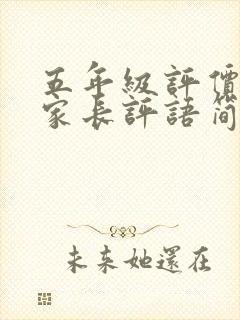 五年級評價
家長評語簡
未來她還在